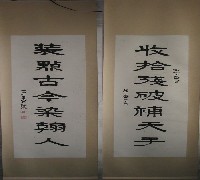 收拾殘破補天手
裝點古今染翰人